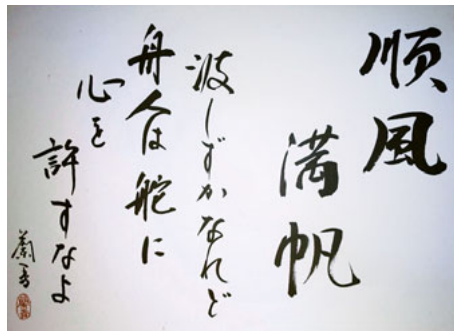 順風
満帆
波しずかなれど
舟人は舵に
心を
許すなよ